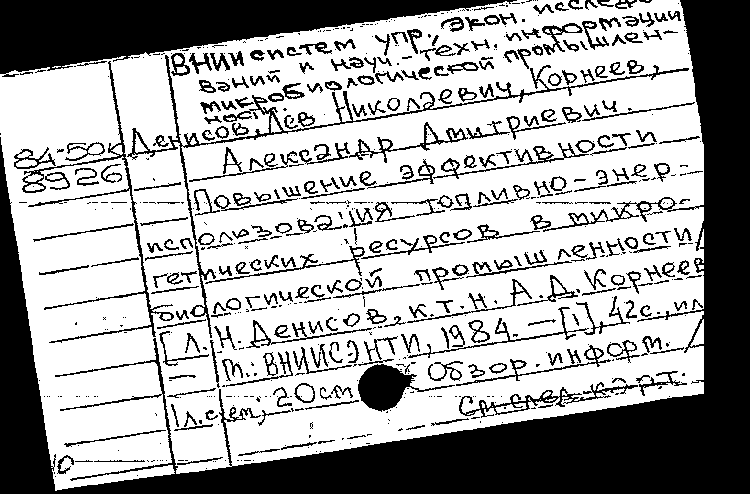 ВНИИ систем упр., экон. исследо-
ваний и науч.-техн. информации
микробиологической промышлен-
ности.
Денисов, Лев Николаевич, Корнеев,
84-50к
8926
Александр Дмитриевич.
Повышение эффективности
использования топливно-энер-
гетических ресурсов в микро-
биологической промышленности /
[Л.Н. Денисов, к.т.н. А.Д. Корнеев
— М.: ВНИИСЭНТИ, 1984. — [1], 42с., ил.
1л.схем; 20см (Обзор. информ. /
См. след. к-рт.
10